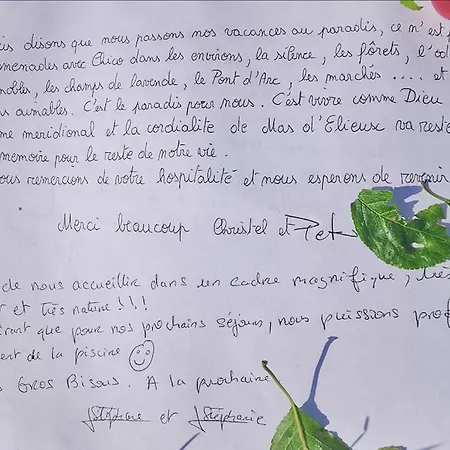 disons que nous passons nos vacances au paradis, ce n'est
avec Chico dans les environs, la silence, les fôrets,
les champs de lavende, le Pont d'Arc, les marchés .... et
aimables. C'est le paradis pour nous. C'est vivre comme Dieu
meridional et la cordialité de Mas d'Elieux va reste
memoire pour le reste de notre vie.
remercions de votre hospitalité et nous esperons de revenir
Merci beaucoup Christel et Peter
de nous accueillir dans un cadre magnifique,
et très nature !!!
que pour nos prochains séjours, nous puissions
de la piscine
Gros Bisous. A la prochaine
Stéphane et Stéphanie